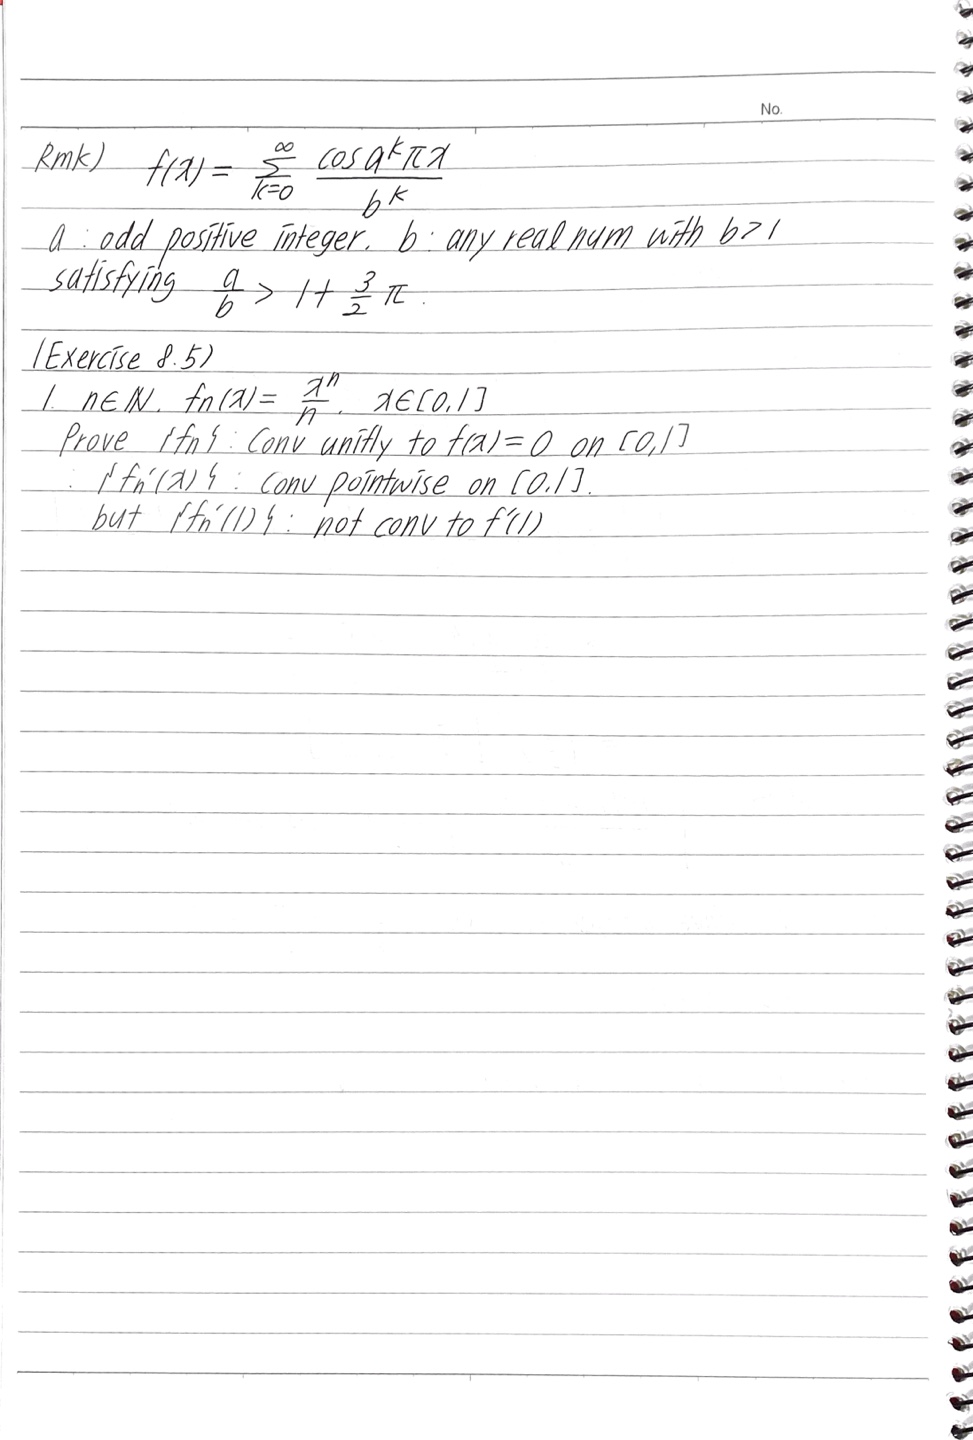 No.
Rmk) f(x) = ∑_{k=0}^{∞} cos a^k πx / b^k
a : odd positive integer. b : any real num with b>1
satisfying a/b > 1 + 3/2 π.
(Exercise 8.5)
1. n∈ℕ. fn(x) = x^n/n. x∈[0,1]
Prove {fn} : Conv unifly to f(x)=0 on [0,1]
: {fn'(x)} : conv pointwise on [0.1].
but {fn'(1)} : not conv to f'(1)